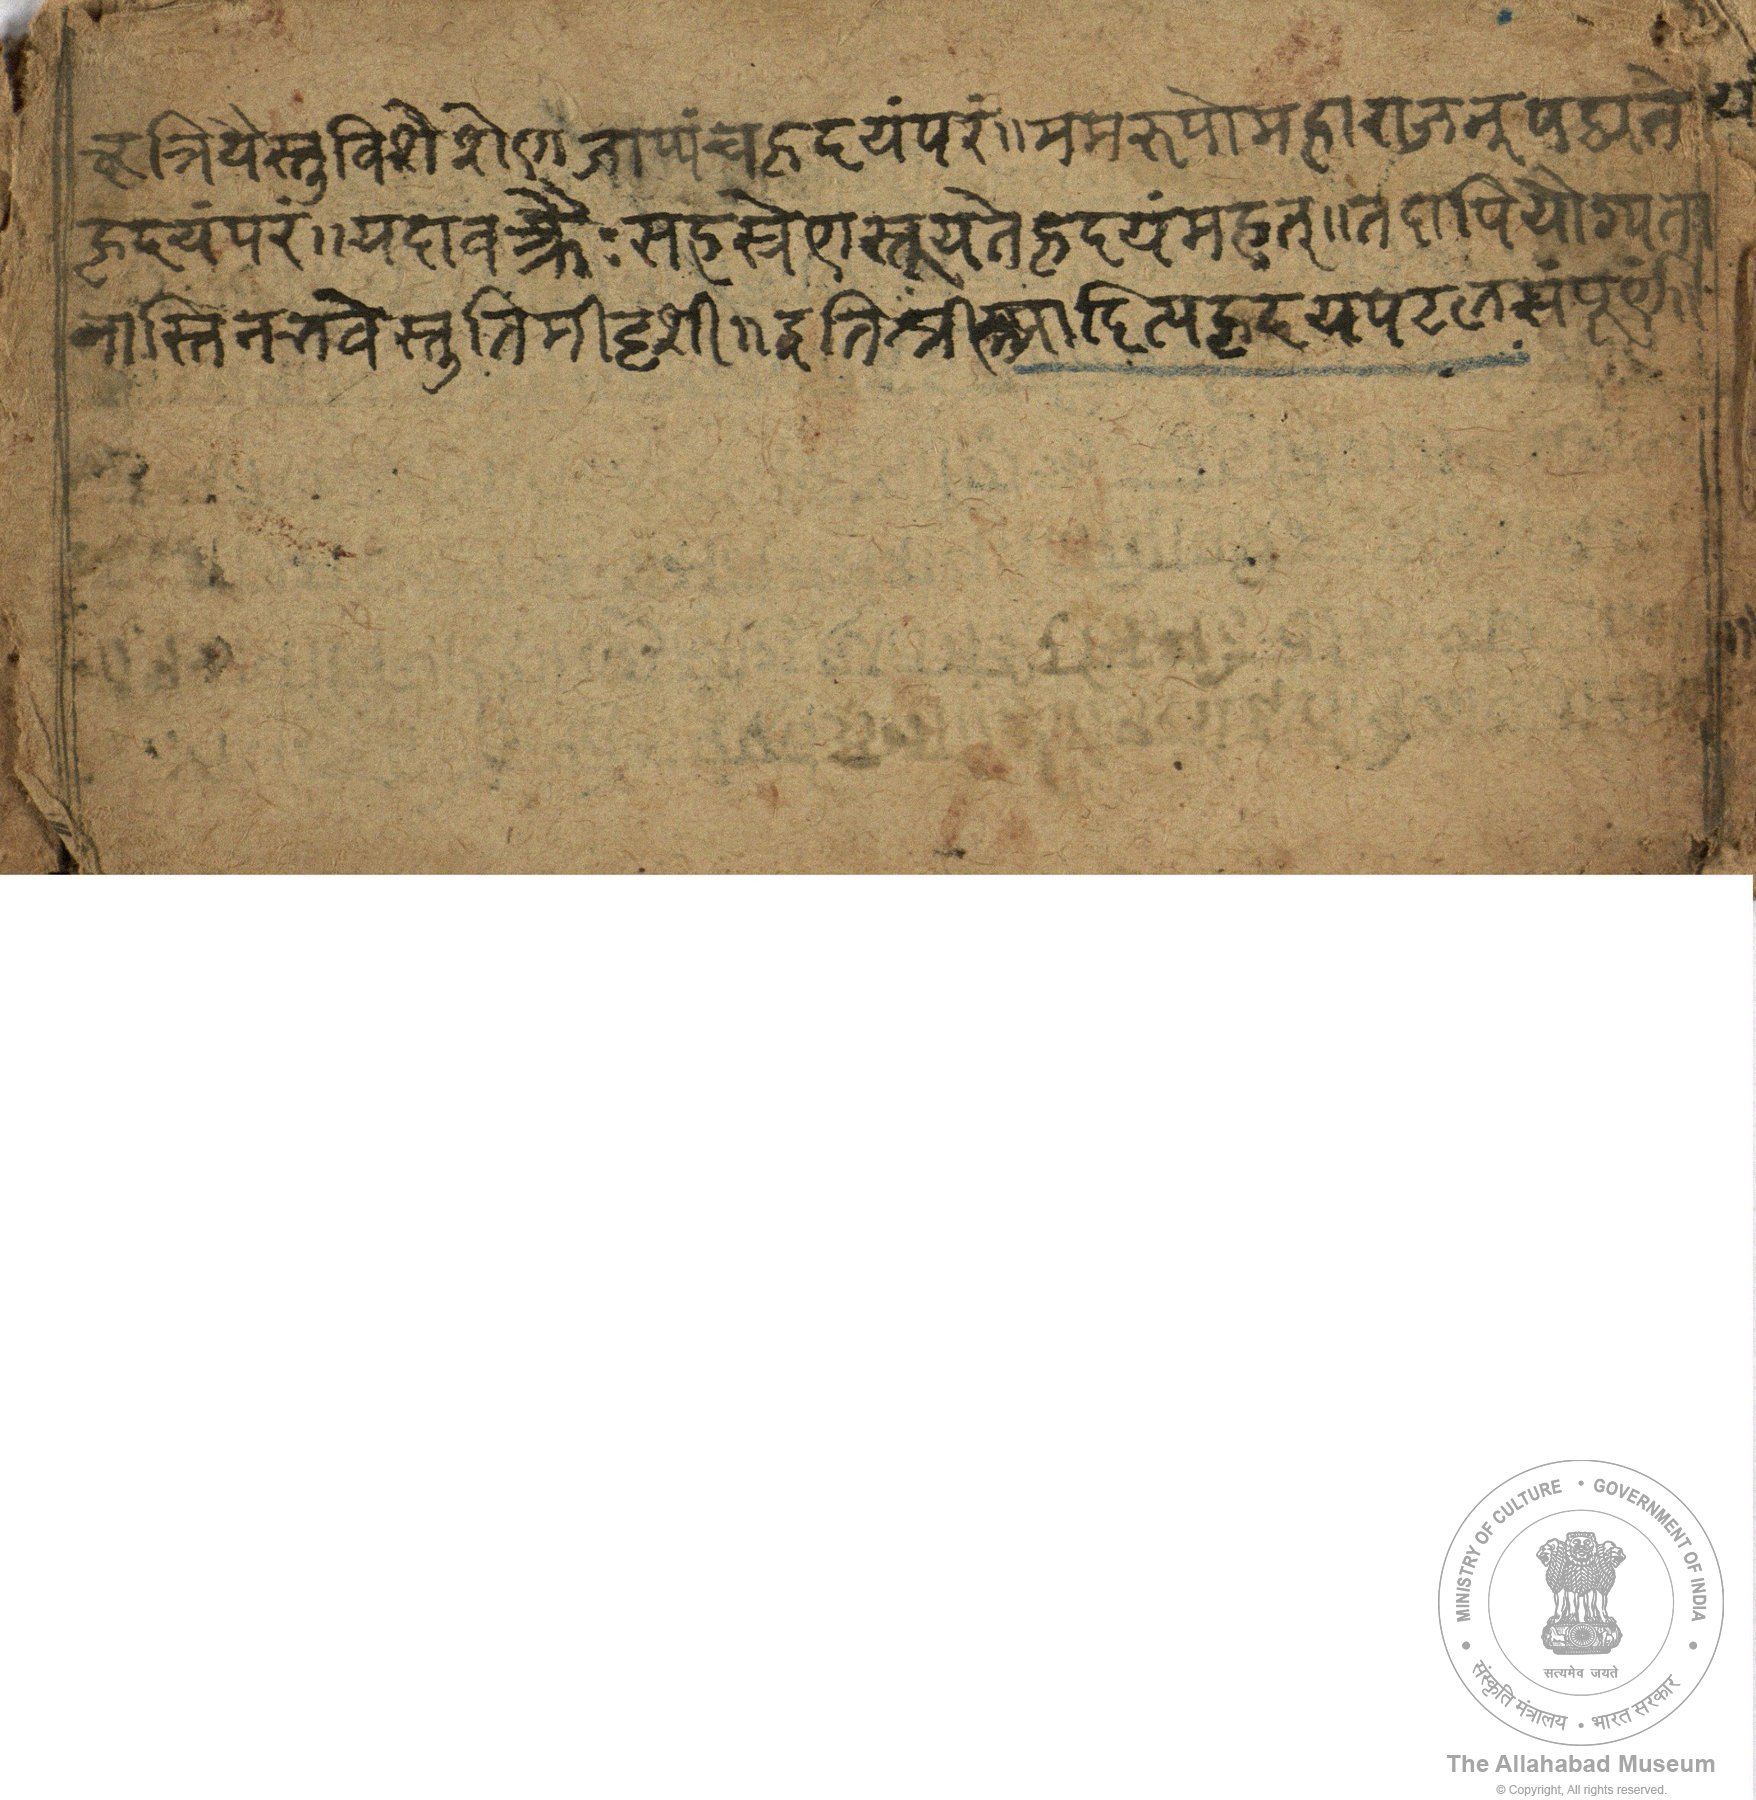 क्षत्रियैस्तु विशेशेण जाप्यं च हृदयं परं ॥ मम रूपो महाराजन् पठ्यते
हृदयं परं ॥ यदा वक्त्रैः सहस्त्रेण स्तूयते हृदयं महत् ॥ तदापि योग्यता
नास्ति न भवे स्तुतिमीदृशी ॥ इति श्री आदित्यहृदय पटल संपूर्ण ॥
MINISTRY OF CULTURE • GOVERNMENT OF INDIA
सत्यमेव जयते
संस्कृति मंत्रालय • भारत सरकार
The Allahabad Museum
© Copyright, All rights reserved.